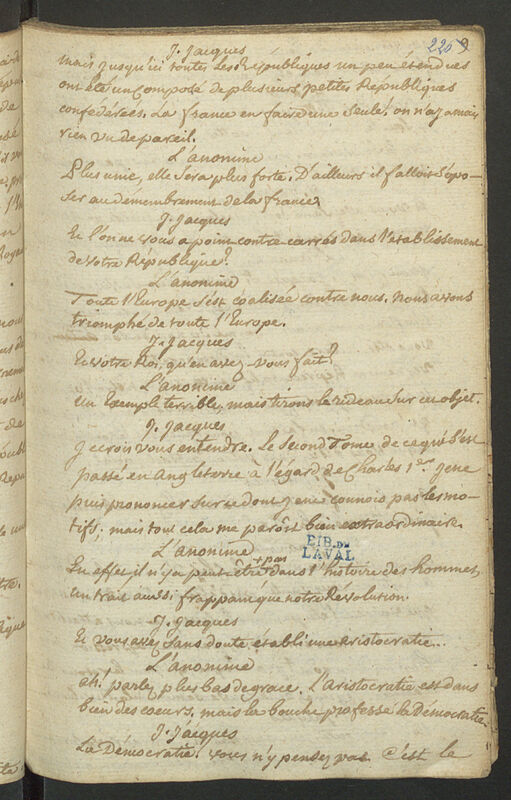 220
J. Jacques
mais jusqu'ici toutes les républiques un peu étendues
ont été un composé de plusieurs petites Républiques
confédérées. La france en faire une seule! on n'a jamais
rien vu de pareil.
L'anonime
Plus unie, elle sera plus forte. D'ailleurs il falloit s'opo-
ser au démembrement de la france.
J. Jacques
Et l'on ne vous a point contrecarrés dans l'établissement
de votre République?
L'anonime
Toute l'Europe s'est coalisée contre nous. nous avons
triomphé de toute l'Europe.
J. Jacques
Et votre Roi, qu'en avez-vous fait?
L'anonime
un Exemple terrible, mais tirons le rideau sur cet objet.
J. Jacques
je crois vous entendre. Le second Tome de ce qui s'est
passé en Angleterre à l'égard de Charles 1er. je ne
puis prononcer sur ce dont je ne connois pas les mo-
tifs; mais tout cela me paroît bien extraordinaire.
L'anonime
BIB. DE
LAVAL
+ pas
En effet, il n'y a peut-être + dans l'histoire des hommes
un trait aussi frappant que notre Revolution.
J. Jacques
Et vous avez sans doute établi une Aristocratie...
L'anonime
ah! parlez plus bas de grace. L'aristocratie est dans
bien des coeurs, mais la bouche professe la Démocratie.
J. Jacques
La Démocratie! vous n'y pensez pas. C'est le